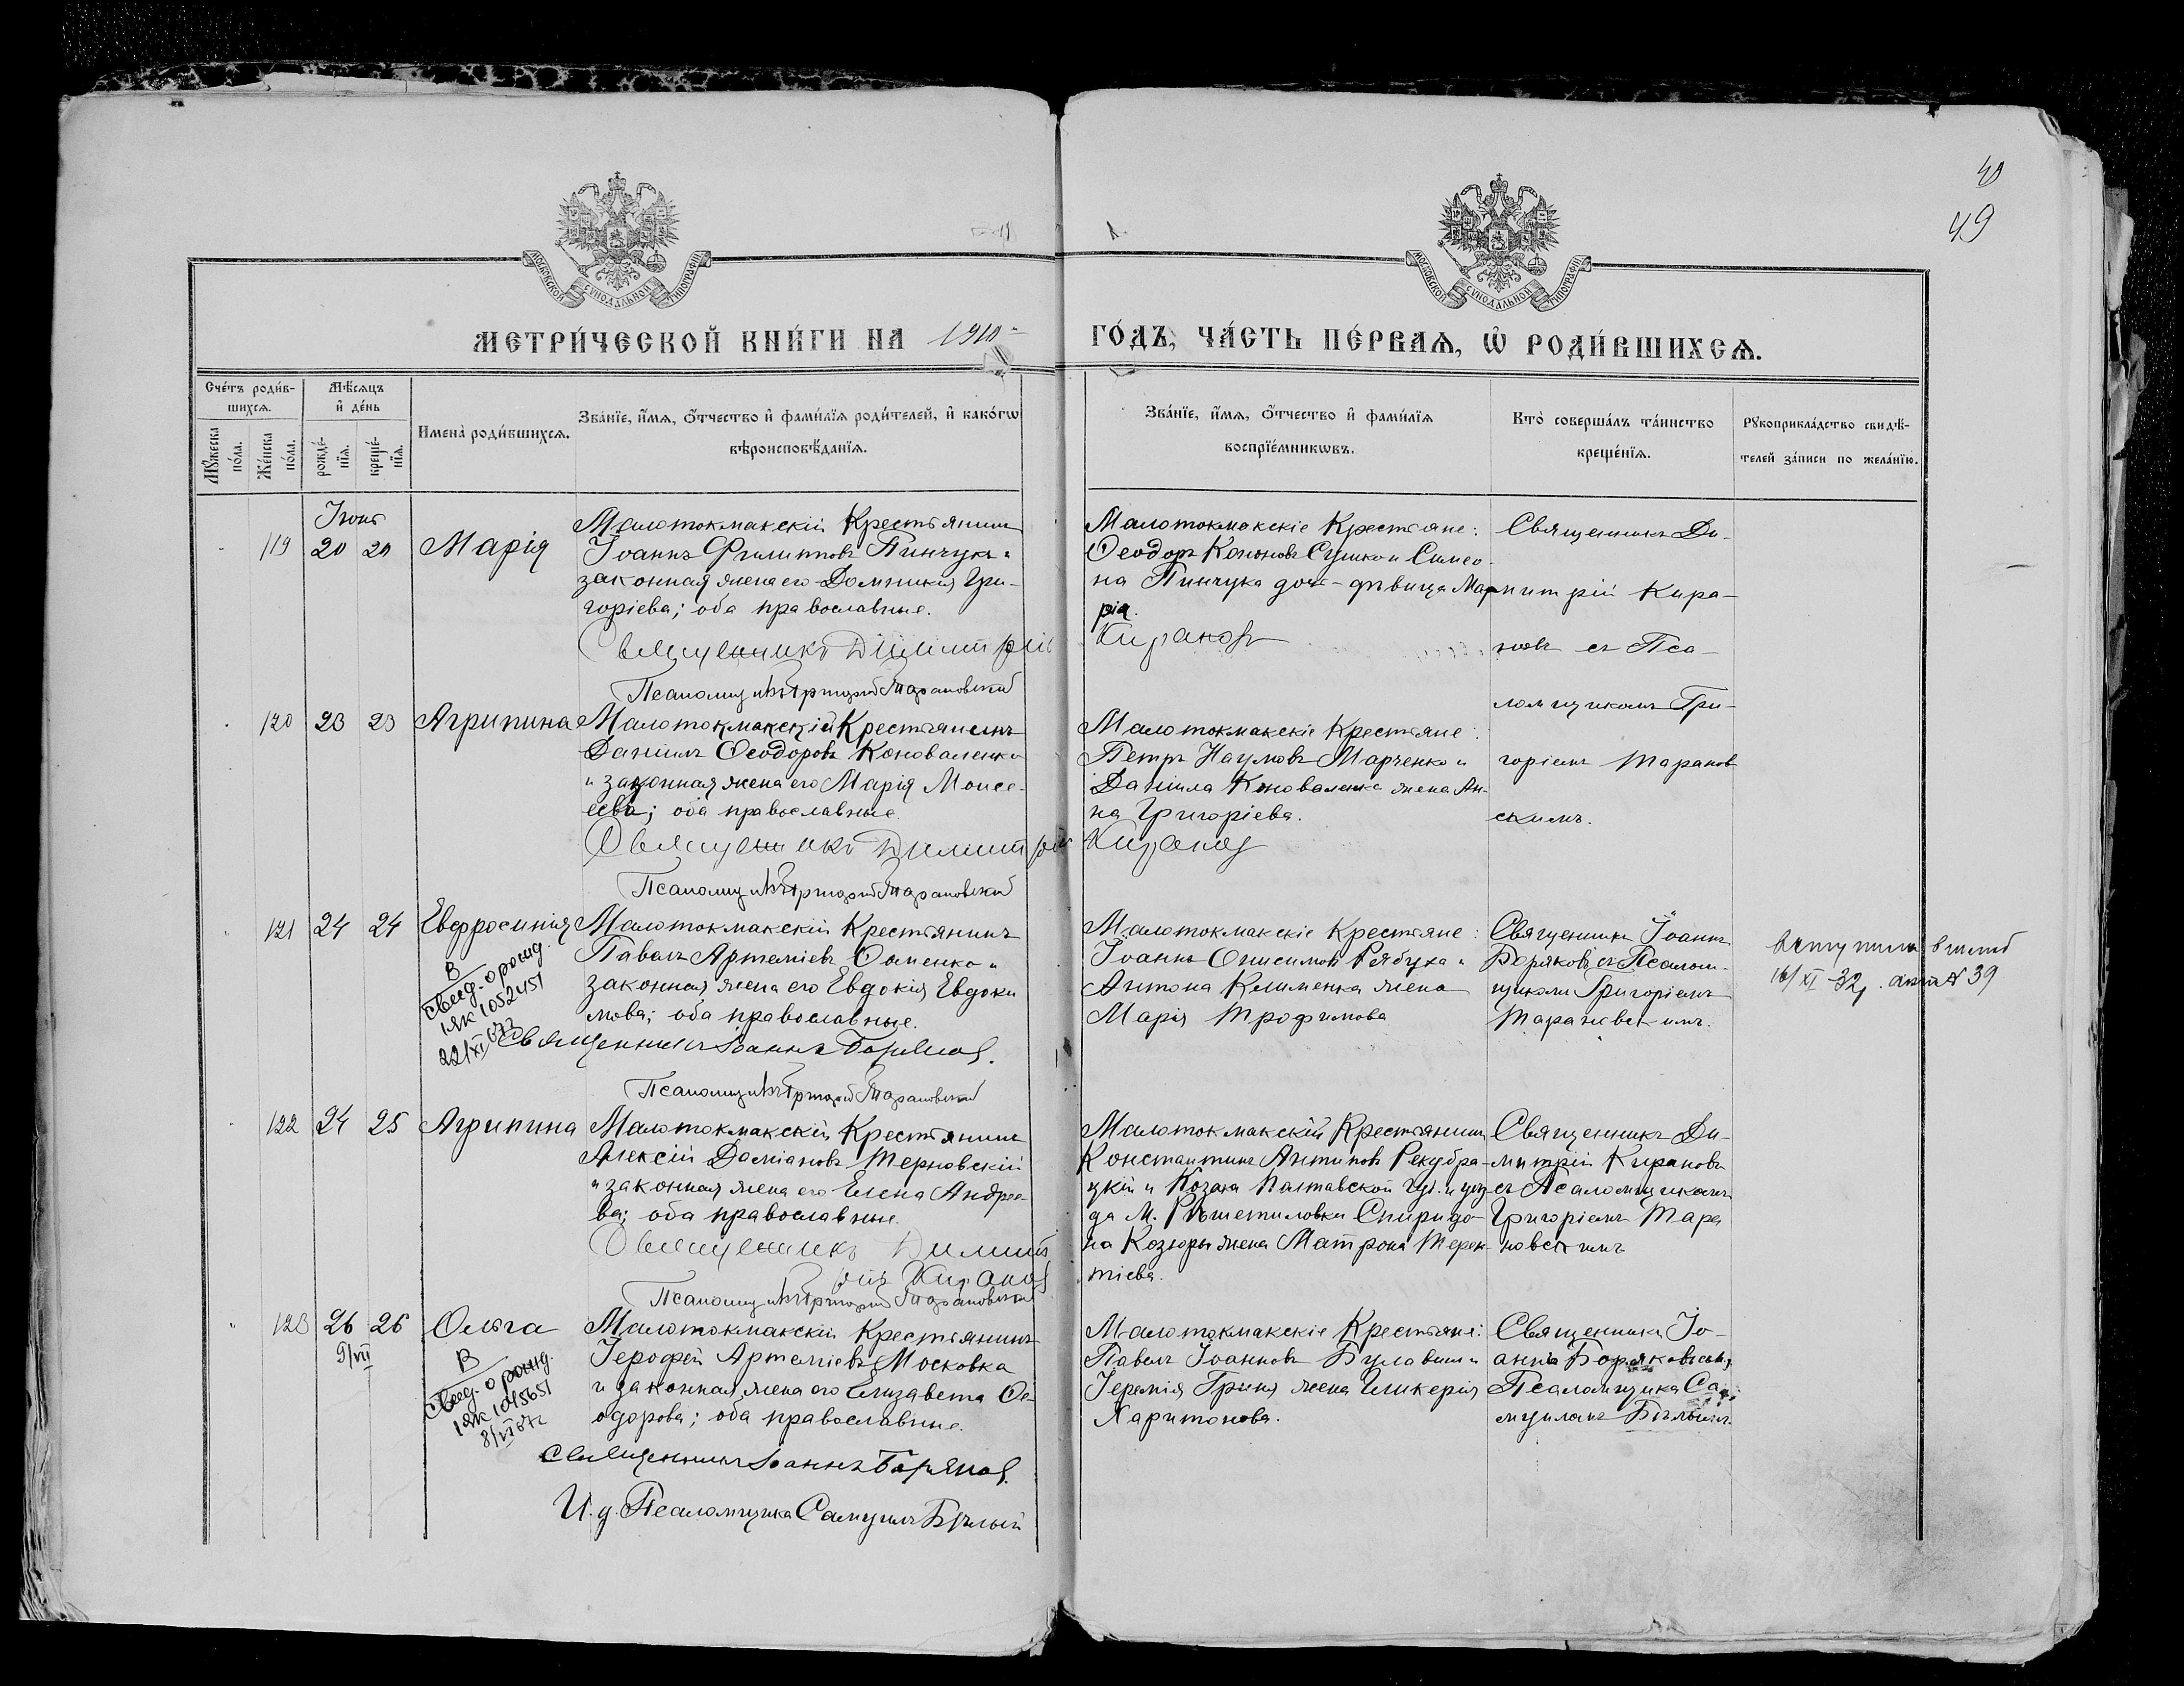 40
49
МОСКОВСКОЙ СѴНОДАЛЬНОЙ ТИПОГРАФІИ
МОСКОВСКОЙ СѴНОДАЛЬНОЙ ТИПОГРАФІИ
МЕТРИ́ЧЕСКОЙ КНИ́ГИ НА 1910
ГО́ДЪ, ЧА́СТЬ ПЕ́РВАѦ, Ѽ РОДИ́ВШИХСѦ.
Сче́тъ роди́в-
шихсѧ.
Мѣ́сѧцъ
и҆ де́нь
Мꙋ́жеска по́ла.
Же́нска по́ла.
рожде́-
нїѧ.
креще́-
нїѧ.
Имена̀ роди́вшихсѧ.
Зва́нїе, и҆́мѧ, ѻ҆́тчество и҆ фами́лїѧ роди́телей, и҆ како́гѡ
вѣроисповѣ́данїѧ.
Зва́нїе, и҆́мѧ, ѻ҆́тчество и҆ фами́лїѧ
воспрїе́мникѡвъ.
Кто̀ соверша́лъ та́инство
креще́нїѧ.
Рꙋкоприкла́дство свидѣ́-
телей за́писи по жела́нїю.
Іюнь
119 20 20 Марія
Малотокмакскій Крестьянинъ
Іоаннъ Филипповъ Пинчукъ и
законная жена его Домникія Гри-
горіева; оба православные.
Священникъ Димитрій Кирановъ
Псаломщикъ Григорій Тарановскій
Малотокмакскіе Крестьяне:
Ѳеодоръ Кононовъ Сушко и Симео-
на Пинчука дочь-дѣвица Ма-
рія.
Священникъ Ди-
митрій Кира-
новъ съ Пса-
ломщикомъ Гри-
горіемъ Таранов
скимъ.
120 23 23 Агрипина
Малотокмакскій Крестьянинъ
Даніилъ Ѳеодоровъ Коноваленко
и законная жена его Марія Моисе-
ева; оба православные.
Священникъ Димитрій Кирановъ
Псаломщикъ Григорій Тарановскій
Малотокмакскіе Крестьяне:
Петръ Наумовъ Марченко и
Даніила Коноваленка жена Ан-
на Григоріева.
121 24 24 Евфросинія
В
свид. о рожд.
1ЯК 1052451
22/XI 672
Малотокмакскій Крестьянинъ
Павелъ Артеміевъ и
законная жена его Евдокія Евдоки
мова; оба православные.
Священникъ Іоаннъ Боряковъ.
Псаломщикъ Григорій Тарановскій
Малотокмакскіе Крестьяне:
Іоаннъ Онисимовъ Рябуха и
Антона Клименка жена
Марія Трофимова
Священникъ Іоаннъ
Боряковъ съ Псалом-
щикомъ Григоріемъ
Тарановскимъ.
вступила в
16/XI-32, акт № 39
122 24 25 Агрипина
Малотокмакскій Крестьянинъ
Алексій Даміановъ Терновскій
и законная жена его Елена Андрее-
ва; оба православные.
Священникъ Димит
рій Кирановъ
Псаломщикъ Григорій Тарановскій
Малотокмакскій Крестьянинъ
Константинъ Антиповъ Рекубра-
цкій и Козака Полтавской губ. и уѣз-
да М. Рѣшетиловки Спиридо-
на Козюры жена Матрона Терен-
тіева.
Священникъ Ди-
митрій Кирановъ
съ Псаломщикомъ
Григоріемъ Тара
новскимъ
123 26 26 Ольга
9/VII
В
свид. о рожд.
1ЯК 1045651
8/VI 87г
Малотокмакскій Крестьянинъ
Іерофей Артеміевъ Московка
и законная жена его Елизавета Ѳе-
одорова; оба православные.
Священникъ Іоаннъ Боряковъ.
И. д. Псаломщика Самуилъ Бѣлый
Малотокмакскіе Крестьяне:
Павелъ Іоанновъ Булавин и
Іеремія Гриня жена Гликерія
Харитонова.
Священникъ Іо-
аннъ Боряковъ съ и.д.
Псаломщика Са-
муиломъ Бѣлымъ.